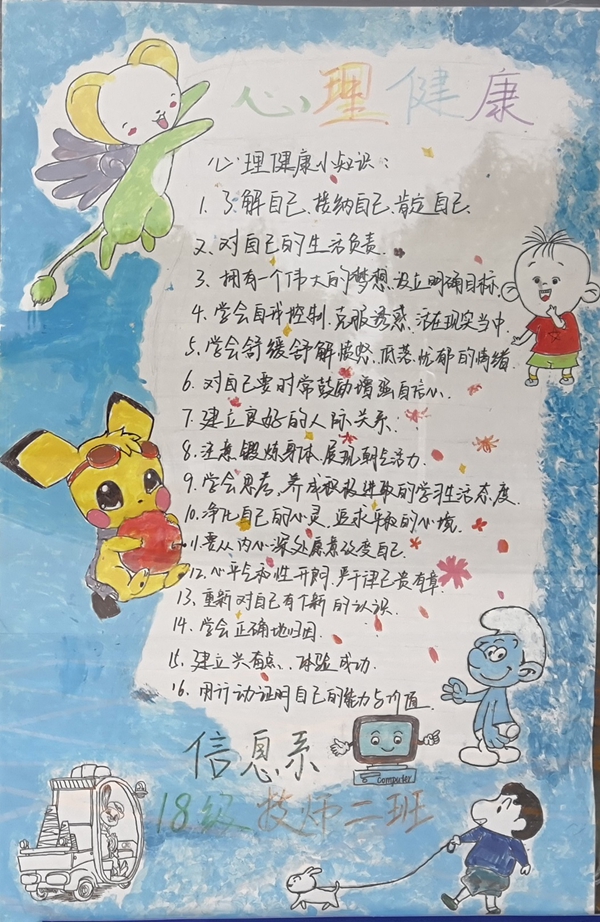 心理健康
心理健康小知识:
1.了解自己、接纳自己、肯定自己.
2.对自己的生活负责.
3.拥有一个伟大的梦想.设立明确目标.
4.学会自我控制.克服诱惑.活在现实当中.
5.学会舒缓舒解愤怒、低落、忧郁的情绪
6.对自己要时常鼓励增强自信心.
7.建立良好的人际关系.
8.注意锻炼身体.展现朝气活力.
9.学会思考,养成积极进取的学习生活态度.
10.净化自己的心灵,追求平和的心境.
11.要从内心深处愿意改变自己.
12.心平气和性开朗,严于律己贵有章.
13.重新对自己有个新的认识.
14.学会正确地归因.
15.建立兴奋点、体验成功.
16.用行动证明自己的能力与价值.
信息系
computer
18级技师二班